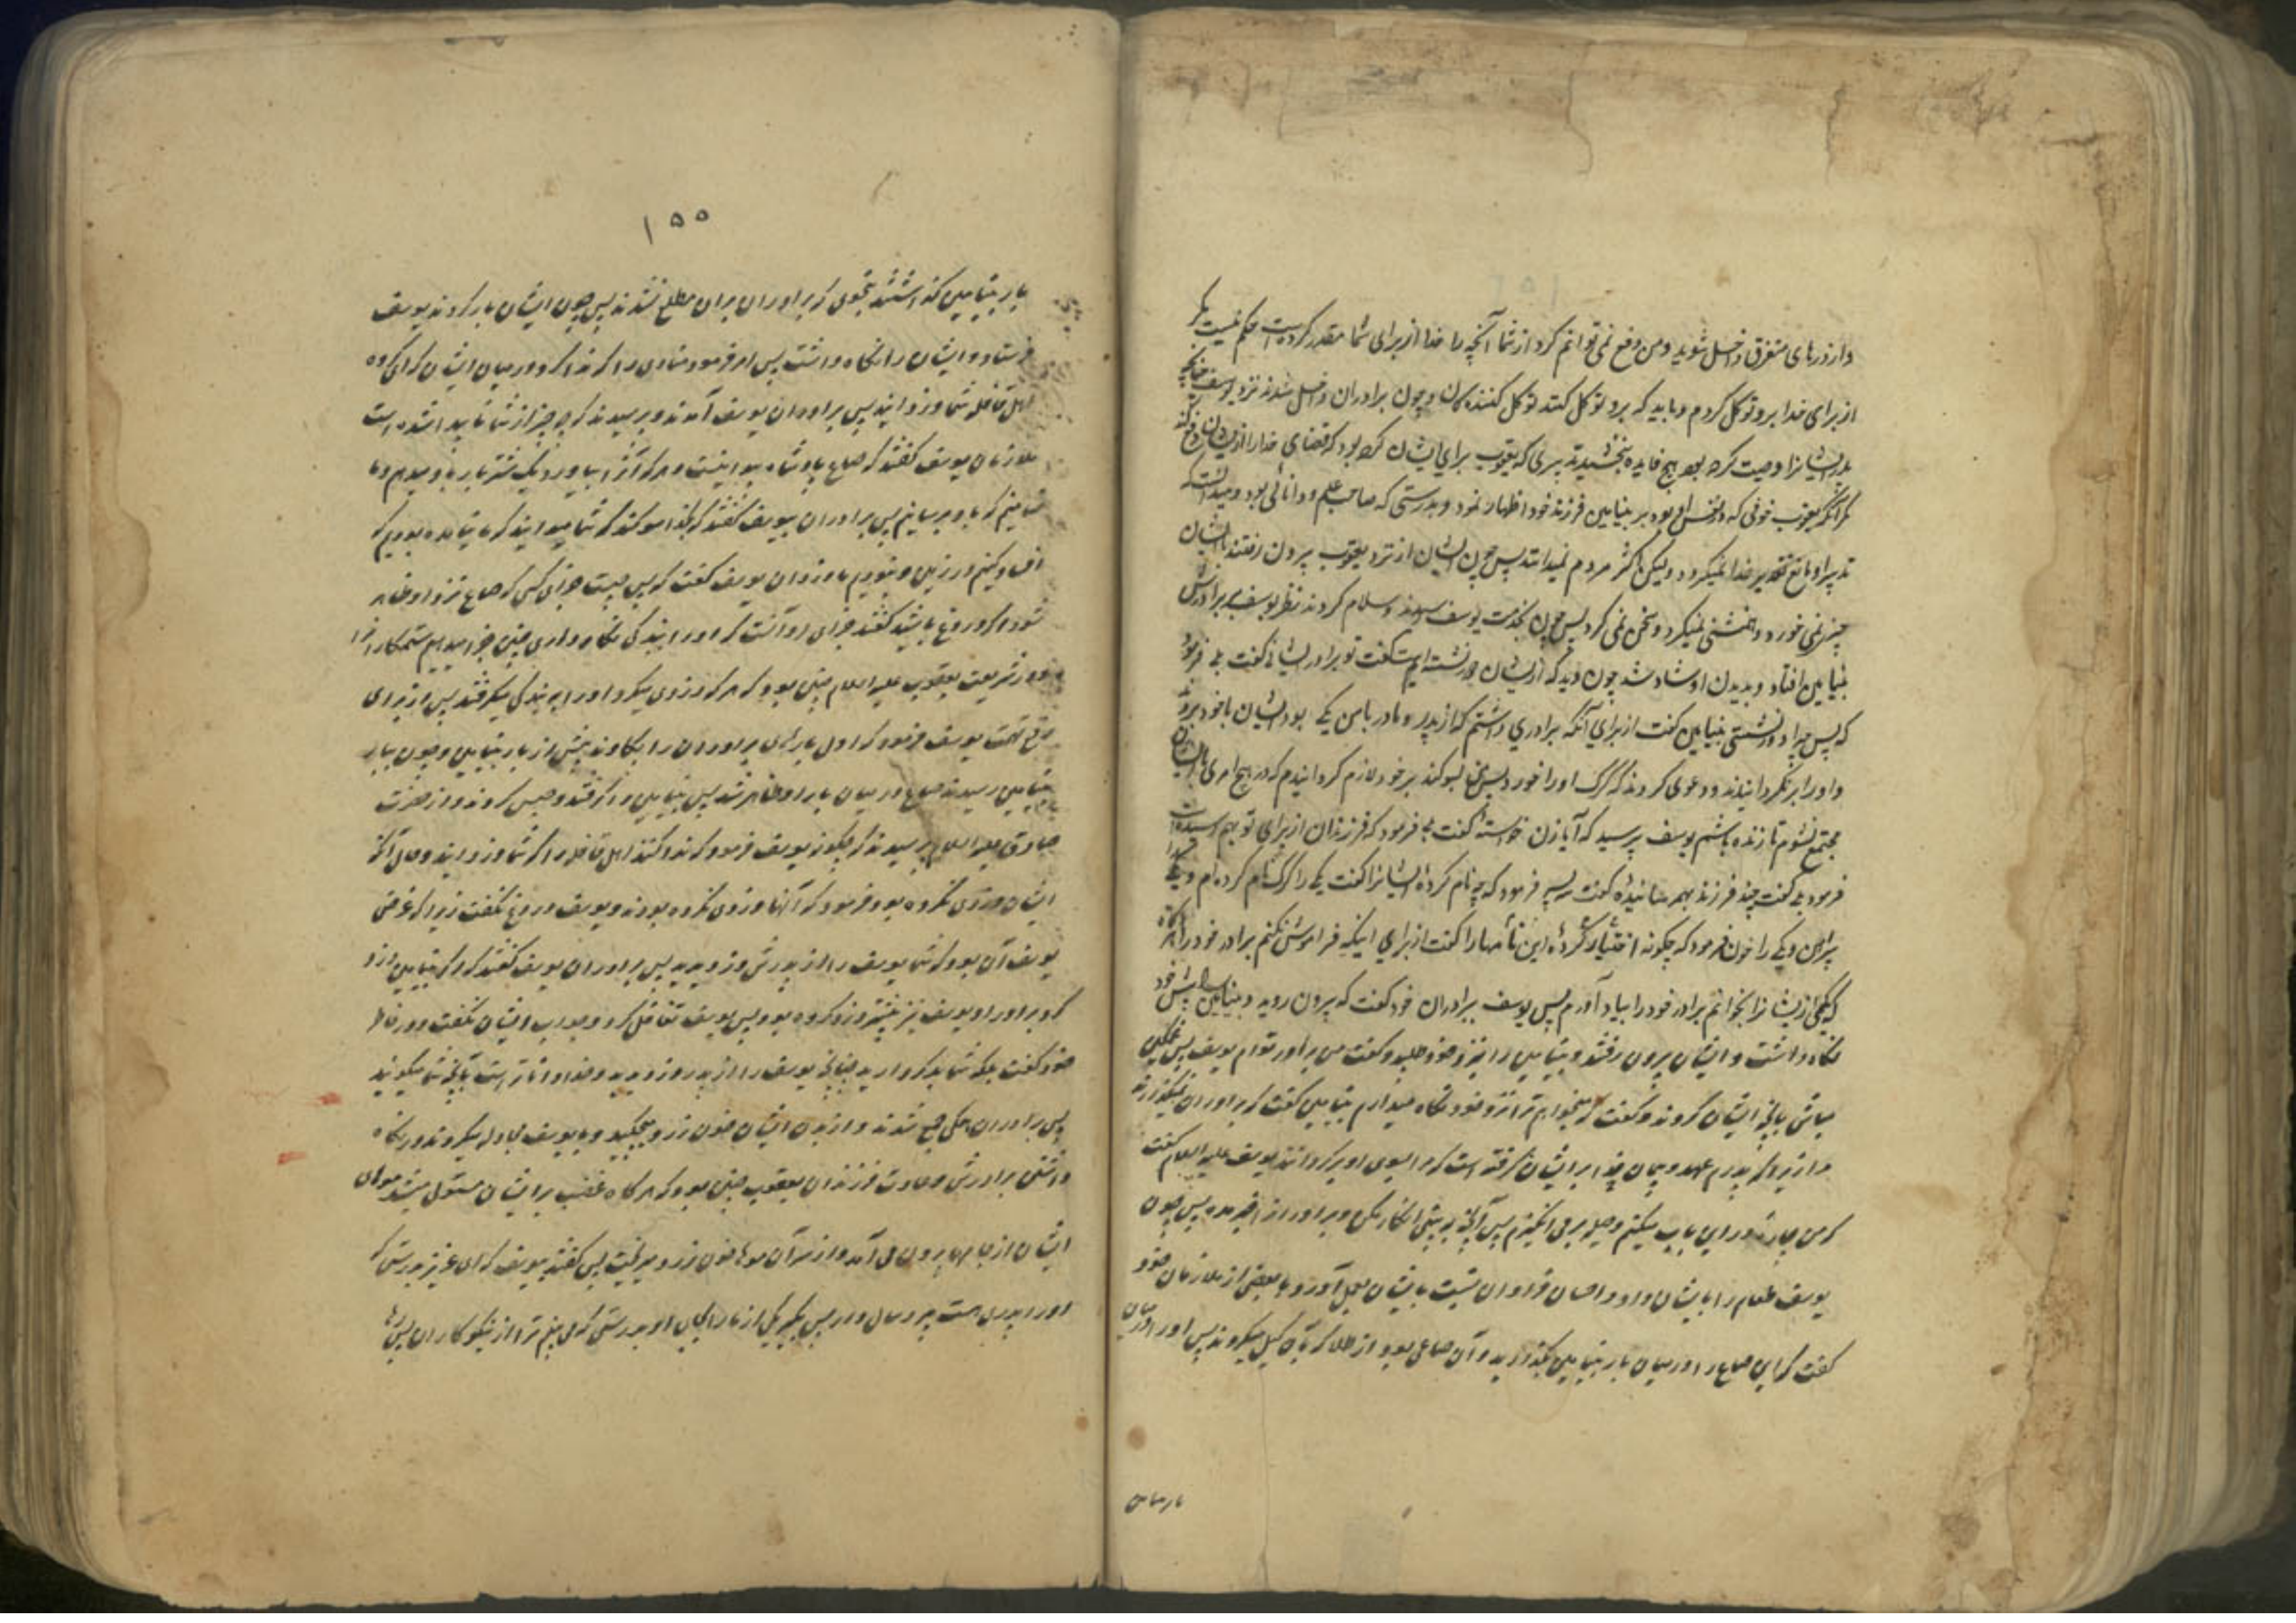 و از درهای متفرق داخل شوید و من دفع نمی توانم کرد از شما آنچه را خدا از برای شما مقدر کرده است حکم نیست مگر
از برای خدا برو توکل کردم و باید که برو توکل کنند توکل کننده کان و چون برادران داخل شدند نزد یوسف چنانچه
پدر ایشانرا وصیت کرده بود هیچ فایده نبخشید تدبیری که یعقوب برای ایشان کرده بود که قضای خدا را از ایشان دفع کند
مگر آنکه یعقوب خوفی که در نفس او بود بر بنیامین فرزند خود اظهار نمود و بدرستی که صاحب علم و دانائی بود و میدانست که
تدبیر او مانع تقدیر خدا نمیگردد ولیکن اکثر مردم نمیدانند پس چون ایشان از نزد یعقوب بیرون رفتند با ایشان
چیزی نمی خورد و همنشینی نمیکرد و سخن نمی کرد پس چون بخدمت یوسف رسیدند و سلام کردند نظر یوسف بر برادرش
بنیامین افتاد و بدیدن او شاد شد چون دید که از ایشان دور نشسته است گفت تو برادر ایشانی گفت بلی فرمود
که پس چرا دور نشستی بنیامین گفت از برای آنکه برادری داشتم که از پدر و مادر با من یکی بود ایشان با خود بردند
و او را برنگردانیدند و دعوی کردند که گرگ او را خورد پس من بسوگند بر خود لازم گردانیدم که در هیچ امری با ایشان
مجتمع نشوم تا زنده باشم یوسف پرسید که آیا زن خواستهٔ گفت بلی فرمود که فرزندان از برای تو بهم رسیده است
فرمود بلی گفت چند فرزند بهم رسانیدهٔ گفت سه پسر فرمود که چه نام کردهٔ ایشانرا گفت یکی را گرگ نام کرده ام و یکی
پیراهن و یکی را خون فرمود که چگونه اختیار کردهٔ این نامها را گفت از برای اینکه فراموش نکنم برادر خود را هرگاه
که یکی از ایشانرا بخوانم برادر خود را بیاد آورم پس یوسف ببرادران خود گفت که بیرون روید و بنیامین را پیش خود
نگاه داشت و ایشان بیرون رفتند و بنیامین را بنزد خود طلبید و گفت من برادر توام یوسف پس غمگین
مباش بآنچه ایشان کردند و گفت که میخواهم ترا نزد خود نگاه میدارم بنیامین گفت که برادران نمیگذارند
مرا زیرا که پدرم عهد و پیمان خدا بر ایشان گرفته است که مرا بسوی او برگردانند یوسف علیه السلام گفت
که من چارهٔ در این باب میکنم و حیله بر می انگیزم پس آنچه به بینی انکار مکن و برادران را خبر مده پس چون
یوسف طعام را بایشان داد و احسان فراوان نسبت بایشان بعمل آورد با بعضی از ملازمان خود
گفت که این صاع را در میان بار بنیامین بگذارید و آن صاعی بود از طلا که بآن کیل میکردند پس او را در میان
بار بنیامین
۱۵۵
بار بنیامین گذاشتند بنحوی که برادران بران مطلع نشدند پس چون ایشان بار کردند یوسف
فرستاد و ایشان را نگاه داشت پس امر فرمود منادی را که ندا کرد در میان ایشان که ای گروه
اهل قافله شما دزدانید پس برادران یوسف آمدند و پرسیدند که چه چیز از شما ناپیدا شده است
ملازمان یوسف گفتند که صاع پادشاه پیدا نیست و هر که آنرا بیاورد یک شتر بار باو میدهم و ما
ضامنیم که باو برسانیم پس برادران یوسف گفتند که بخدا سوگند که شما میدانید که ما نیامده بودیم که
افساد کنیم در زمین و نبودیم ما دزدان یوسف گفت که پس چیست جزای کسی که صاع نزد او ظاهر
شود اگر دروغ گو باشید گفتند جزای او آنست که او را ببندگی نگاه داری چنین جزا میدهیم ستمکارانرا
و در شریعت یعقوب علیه السلام چنین بود که هر که دزدی میکرد او را به بندگی میگرفتند پس از برای
رفع تهمت یوسف فرمود که اول بارهای برادران را بکاوند پیش از بار بنیامین و چون ببار
بنیامین رسیدند صاع در میان بار او ظاهر شد پس بنیامین را گرفتند و حبس کردند و از حضرت
صادق علیه السلام پرسیدند که چگونه یوسف فرمود که ندا کنند اهل قافله را که شما دزدانید و حال آنکه
ایشان دزدی نکرده بودند فرمود که آنها دزدی نکرده بودند و یوسف دروغ نگفت زیرا که غرض
یوسف آن بود که شما یوسف را از پدرش دزدیدید پس برادران یوسف گفتند که اگر بنیامین دزدی
کرد برادر او یوسف نیز پیشتر دزدی کرده بود پس یوسف تغافل کرد و جواب ایشان نگفت و در خاطر
خود گفت بلکه شما بد کردارید چنانچه یوسف را از پدر دزدیدید و خدا داناتر است بآنچه شما میگوئید
پس برادران همگی جمع شدند و از بدن ایشان خون زرد میچکید و با یوسف مجادله میکردند در نگاه
داشتن برادرش و عادت فرزندان یعقوب چنین بود که هرگاه غضب بر ایشان مستولی میشد موهای
ایشان از جامها بیرون می آمد و از سر آن موها خون زرد میریخت پس گفتند بیوسف که ای عزیز بدرستی که
او را پدری هست پیر و سال دار پس بگیر یکی از ما را بجای او بدرستی که می بینیم ترا از نیکوکاران پس رها